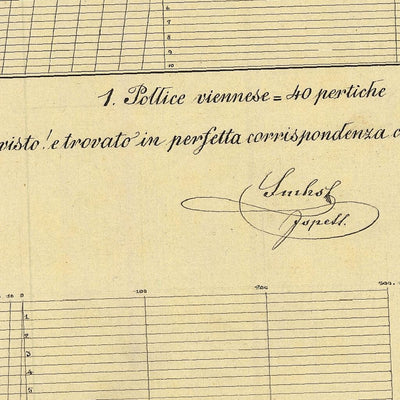 6
7
8
9
10
1. Pollice viennese = 40 pertiche
visto! e trovato in perfetta corrispondenza c
Ispett.
10 0 100 200 300
1
2
3
4
5
6
7
8